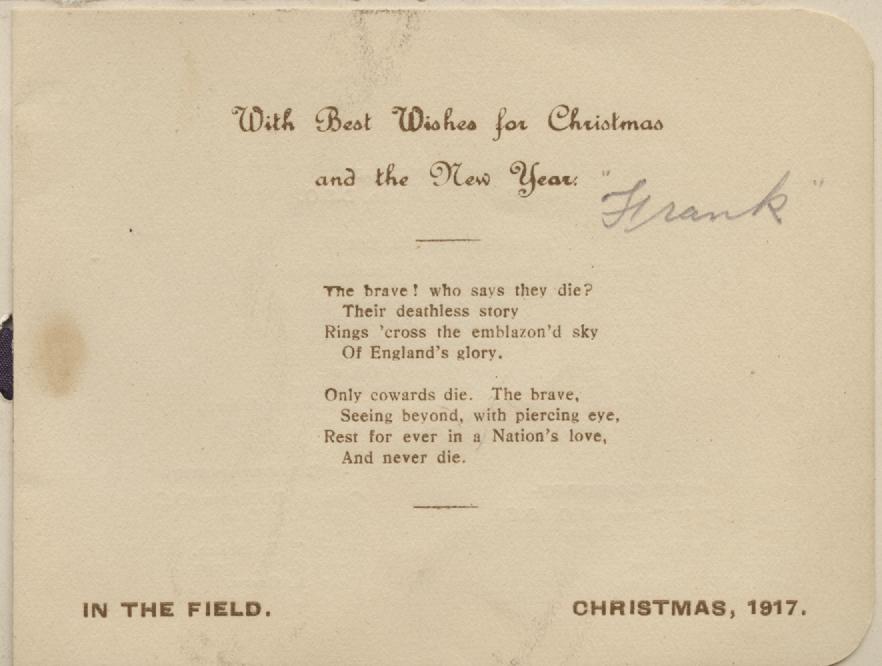 With Best Wishes for Christmas
and the New Year:
"Frank"
The brave! who says they die?
Their deathless story
Rings 'cross the emblazon'd sky
Of England's glory.
Only cowards die. The brave,
Seeing beyond, with piercing eye,
Rest for ever in a Nation's love,
And never die.
IN THE FIELD. CHRISTMAS, 1917.